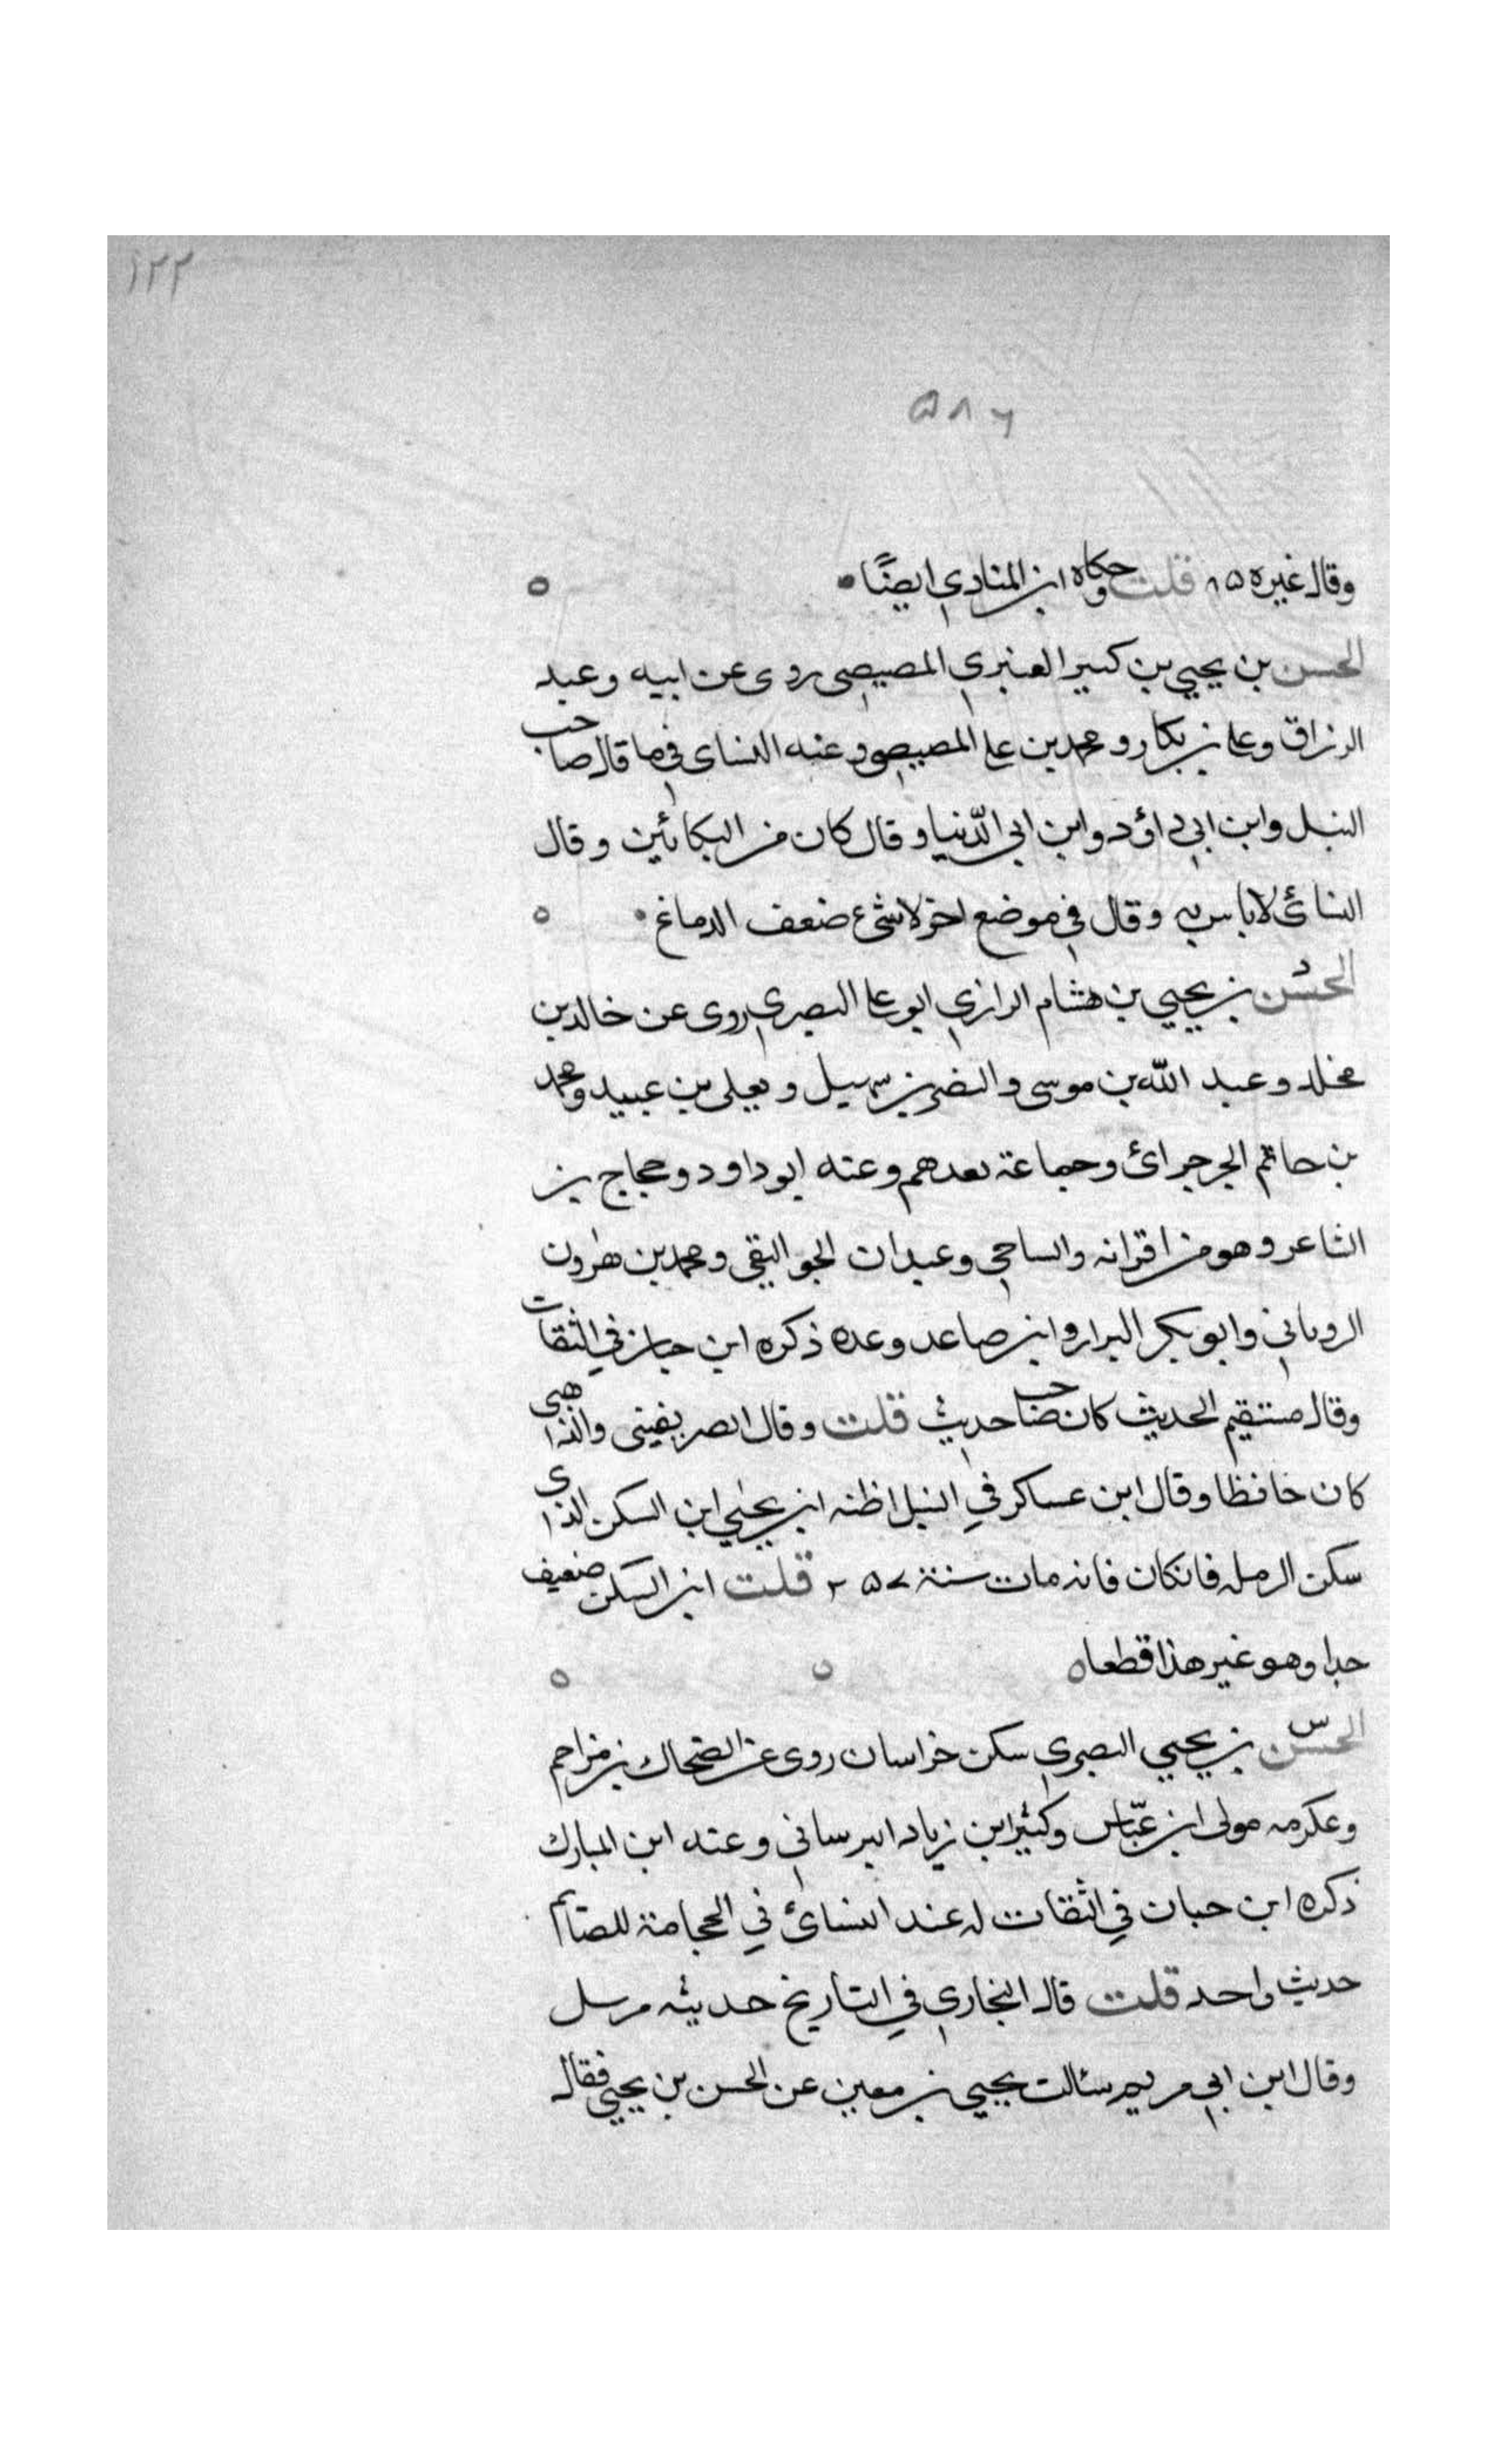 ١٢٢
٥٨٦
وقال غيره ٨٥ قلت وحكاه ابن المنادي ايضًا
الحسن بن يحيي بن كثير العنبري المصيصي روى عن ابيه وعبد
الرزاق وعلي بن بكار ومحمد بن علي المصيصي وعنه النساى فيما قال صاحب
النبل وابن ابي داؤد وابن ابي الدّنيا وقال كان من البكائين وقال
النسائ لا باس به وقال في موضع اخر لا شئ ضعف الدماغ
الحسن بن يحيي بن هشام الرازي ابو علي البصري روى عن خالد بن
مخلد وعبد الله بن موسى والنضر بن سميل ويعلى بن عبيد ومحمد
بن حاتم الجرجرائ وجماعة بعدهم وعنه ابو داود وحجاج بن
الشاعر وهو من اقرانه والساجي وعبدان الجواليقي ومحمد بن هرون
الروياني وابو بكر البزار وابن صاعد وعده ذكره ابن حبان في الثقات
وقال مستقيم الحديث كان صاحب حديث قلت وقال الصريفينى والذاهبى
كان حافظا وقال ابن عساكر في النبل اظنه ابن يحيي ابن السكن الذى
سكن الرمله فانكان فانه مات سنة ٢٥٧ قلت ابن السكن ضعيف
جدا وهو غير هذا قطعا
الحسن بن يحيي البصري سكن خراسان روى عن الضحاك بن مزاحم
وعكرمه مولى ابن عبّاس وكثير ابن زياد البرساني وعنه ابن المبارك
ذكره ابن حبان في الثقات له عند النسائ في الحجامة للصائم
حديث واحد قلت قال البخاري في التاريخ حديثه مرسل
وقال ابن ابي مريم سئالت يحيي بن معين عن الحسن بن يحيي فقال